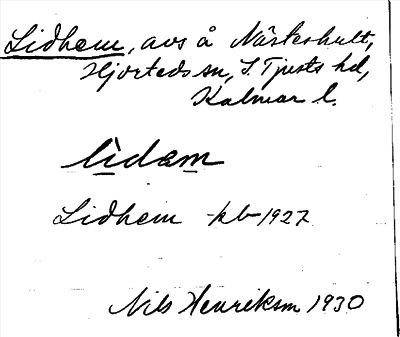 Lidhem, avs å Närteshult,
Hjorteds sn, S. Tjusts hd,
Kalmar l.
lìdam
Lidhem kb 1927
Nils Henrikson 1930